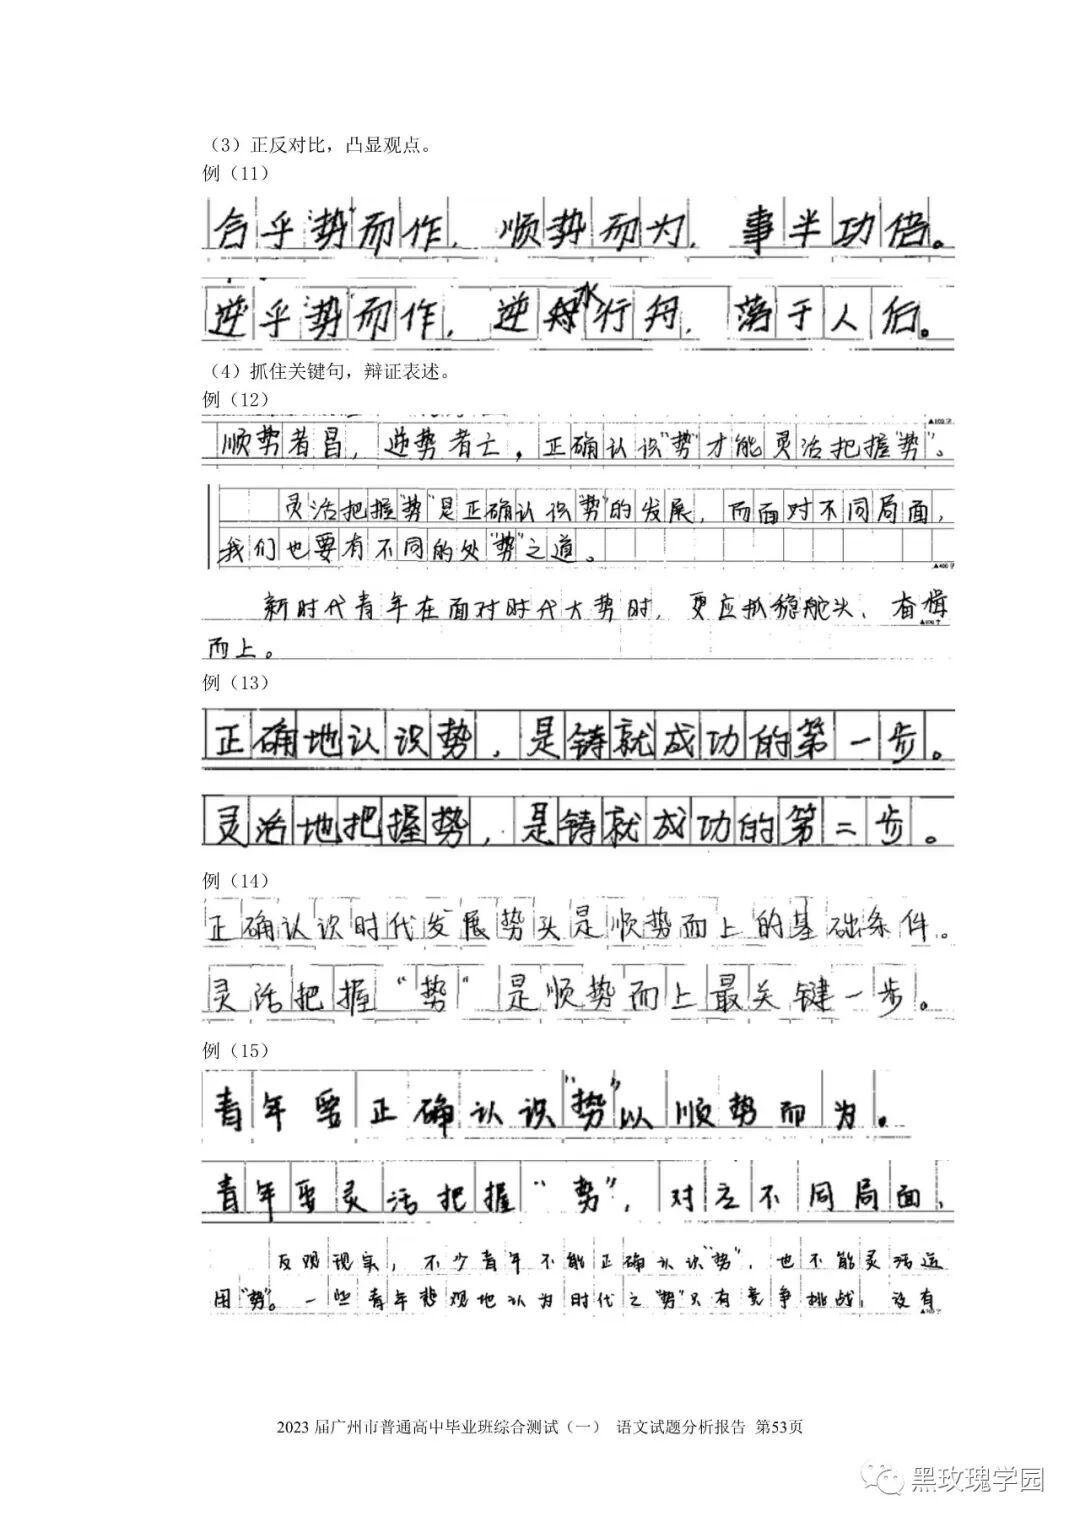 （3）正反对比，凸显观点。
例（11）
合乎“势”而作，顺势而为，事半功倍。
逆乎“势”而作，逆水行舟，落于人后。
（4）抓住关键句，辩证表述。
例（12）
顺势者昌，逆势者亡，正确认识“势”才能灵活把握“势”。
灵活把握“势”是正确认识“势”的发展，而面对不同局面，
我们也要有不同的处“势”之道。
新时代青年在面对时代大势时，更应抓稳舵头、奋楫
而上。
例（13）
正确地认识势，是铸就成功的第一步。
灵活地把握势，是铸就成功的第二步。
例（14）
正确认识时代发展势头是顺势而上的基础条件。
灵活把握“势”是顺势而上最关键一步。
例（15）
青年要正确认识“势”以顺势而为。
青年要灵活把握“势”，对立不同局面，
反观现实，不少青年不能正确认识“势”，也不能灵活运
用“势”。一些青年悲观地认为时代之“势”只有竞争挑战，没有
2023 届广州市普通高中毕业班综合测试（一） 语文试题分析报告 第53页
黑玫瑰学园